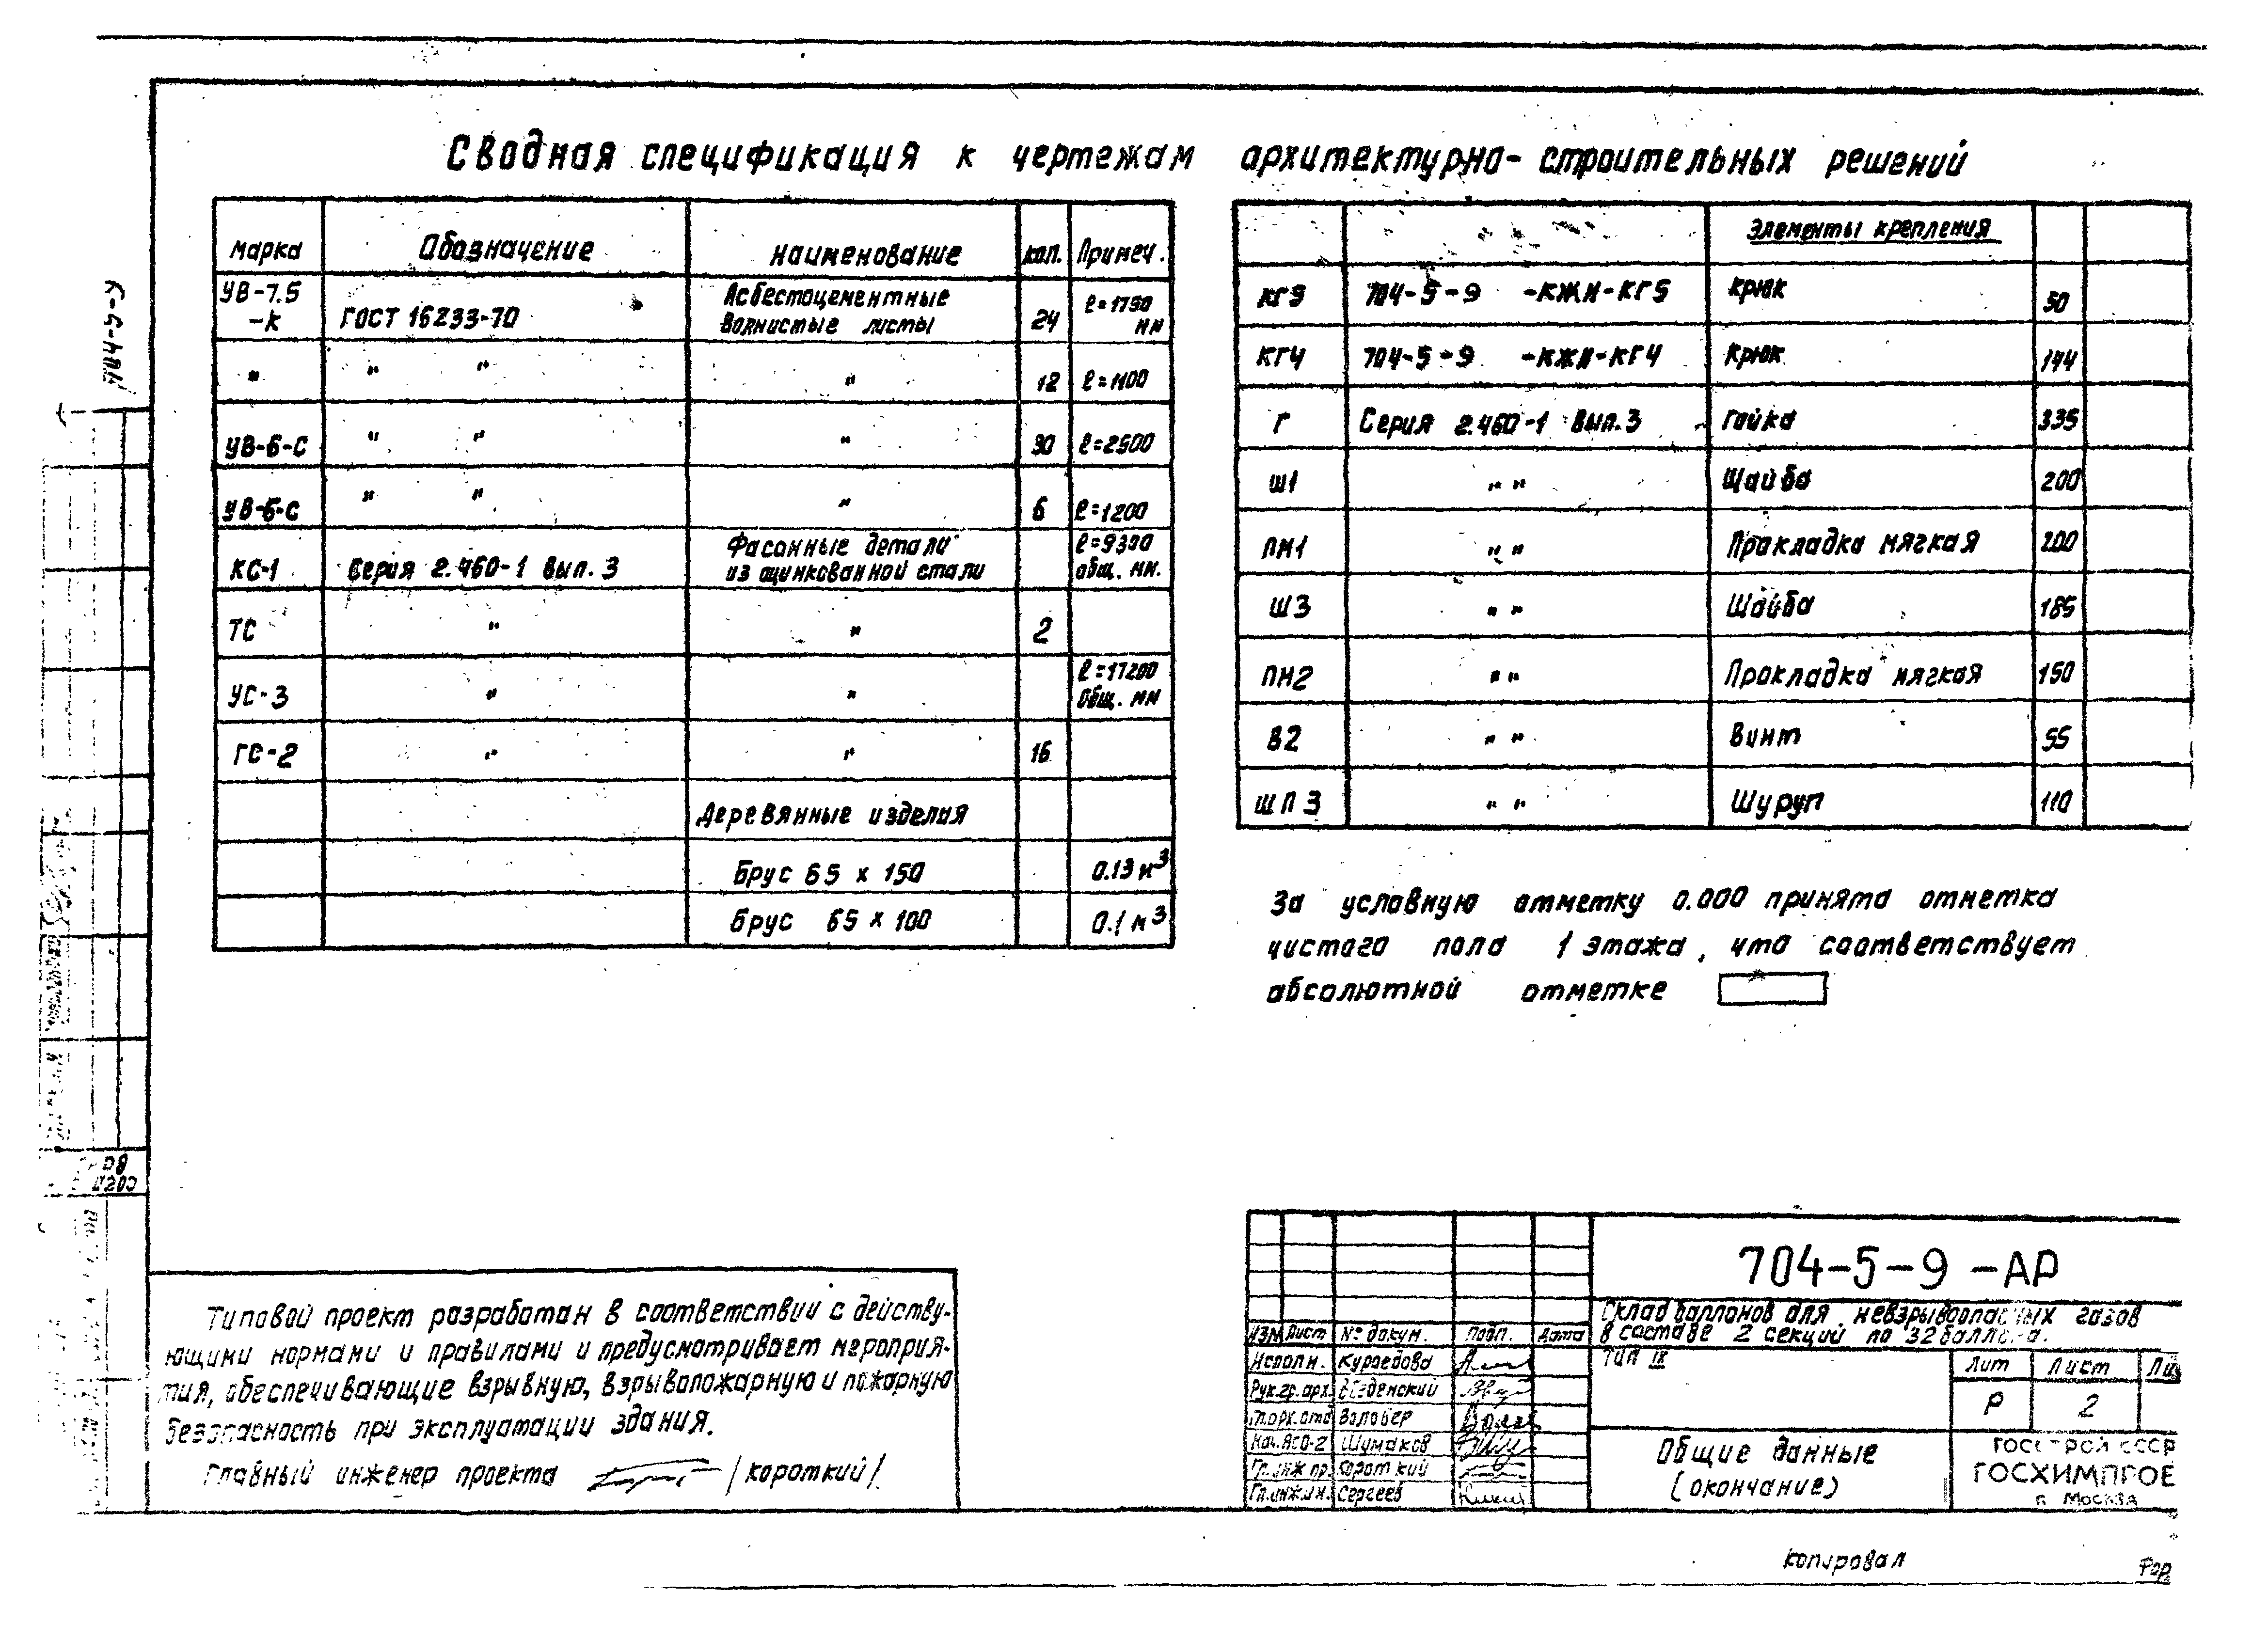 Сводная спецификация к чертежам архитектурно-строительных решений
Марка Обозначение Наименование кол. Примеч.
УВ-7.5 -К ГОСТ 16233-70 Асбестоцементные волнистые листы 24 ℓ=1750 мм
" " " " 12 ℓ=1100
УВ-6-С " " " 30 ℓ=2500
УВ-6-С " " " 6 ℓ=1200
КС-1 Серия 2.460-1 вып.3 Фасонные детали из оцинкованной стали ℓ=9300 общ. мм.
ТС " " 2
УС-3 " " ℓ=17200 общ. мм
ГС-2 " " 16
Деревянные изделия
Брус 65 x 150 0.13 м³
брус 65 x 100 0.1 м³
Элементы крепления
704-5-9 -КЖИ-КГ5 крюк 50
КГ4 704-5-9 -КЖИ-КГ4 Крюк 144
Г Серия 2.460-1 вып.3 Гайка 335
Ш1 " " Шайба 200
ПМ1 " " Прокладка мягкая 200
Ш3 " " Шайба 185
ПМ2 " " Прокладка мягкая 150
В2 " " Винт 55
ШП3 " " Шуруп 110
За условную отметку 0.000 принята отметка
чистого пола 1 этажа, что соответствует
абсолютной отметке
Типовой проект разработан в соответствии с действу-
ющими нормами и правилами и предусматривает мероприя-
тия, обеспечивающие взрывную, взрывопожарную и пожарную
безопасность при эксплуатации здания.
Главный инженер проекта /короткий/.
704-5-9 -АР
Склад баллонов для невзрывоопасных газов
в составе 2 секций по 32 баллона.
тип IX
Изм Лист № докум. Подп. Дата
Исполн. Курседова
Рук.гр.арх. Введенский
Гл.арх.отд Воловер
Нач.АСО-2 Шумаков
Гл.инж пр. Короткий
Гл.инжин. Сергеев
Лит Лист
Р 2
Общие данные
(окончание)
ГОССТРОЙ СССР
ГОСХИМПРОЕ
г. Москва
Копировал
Фор